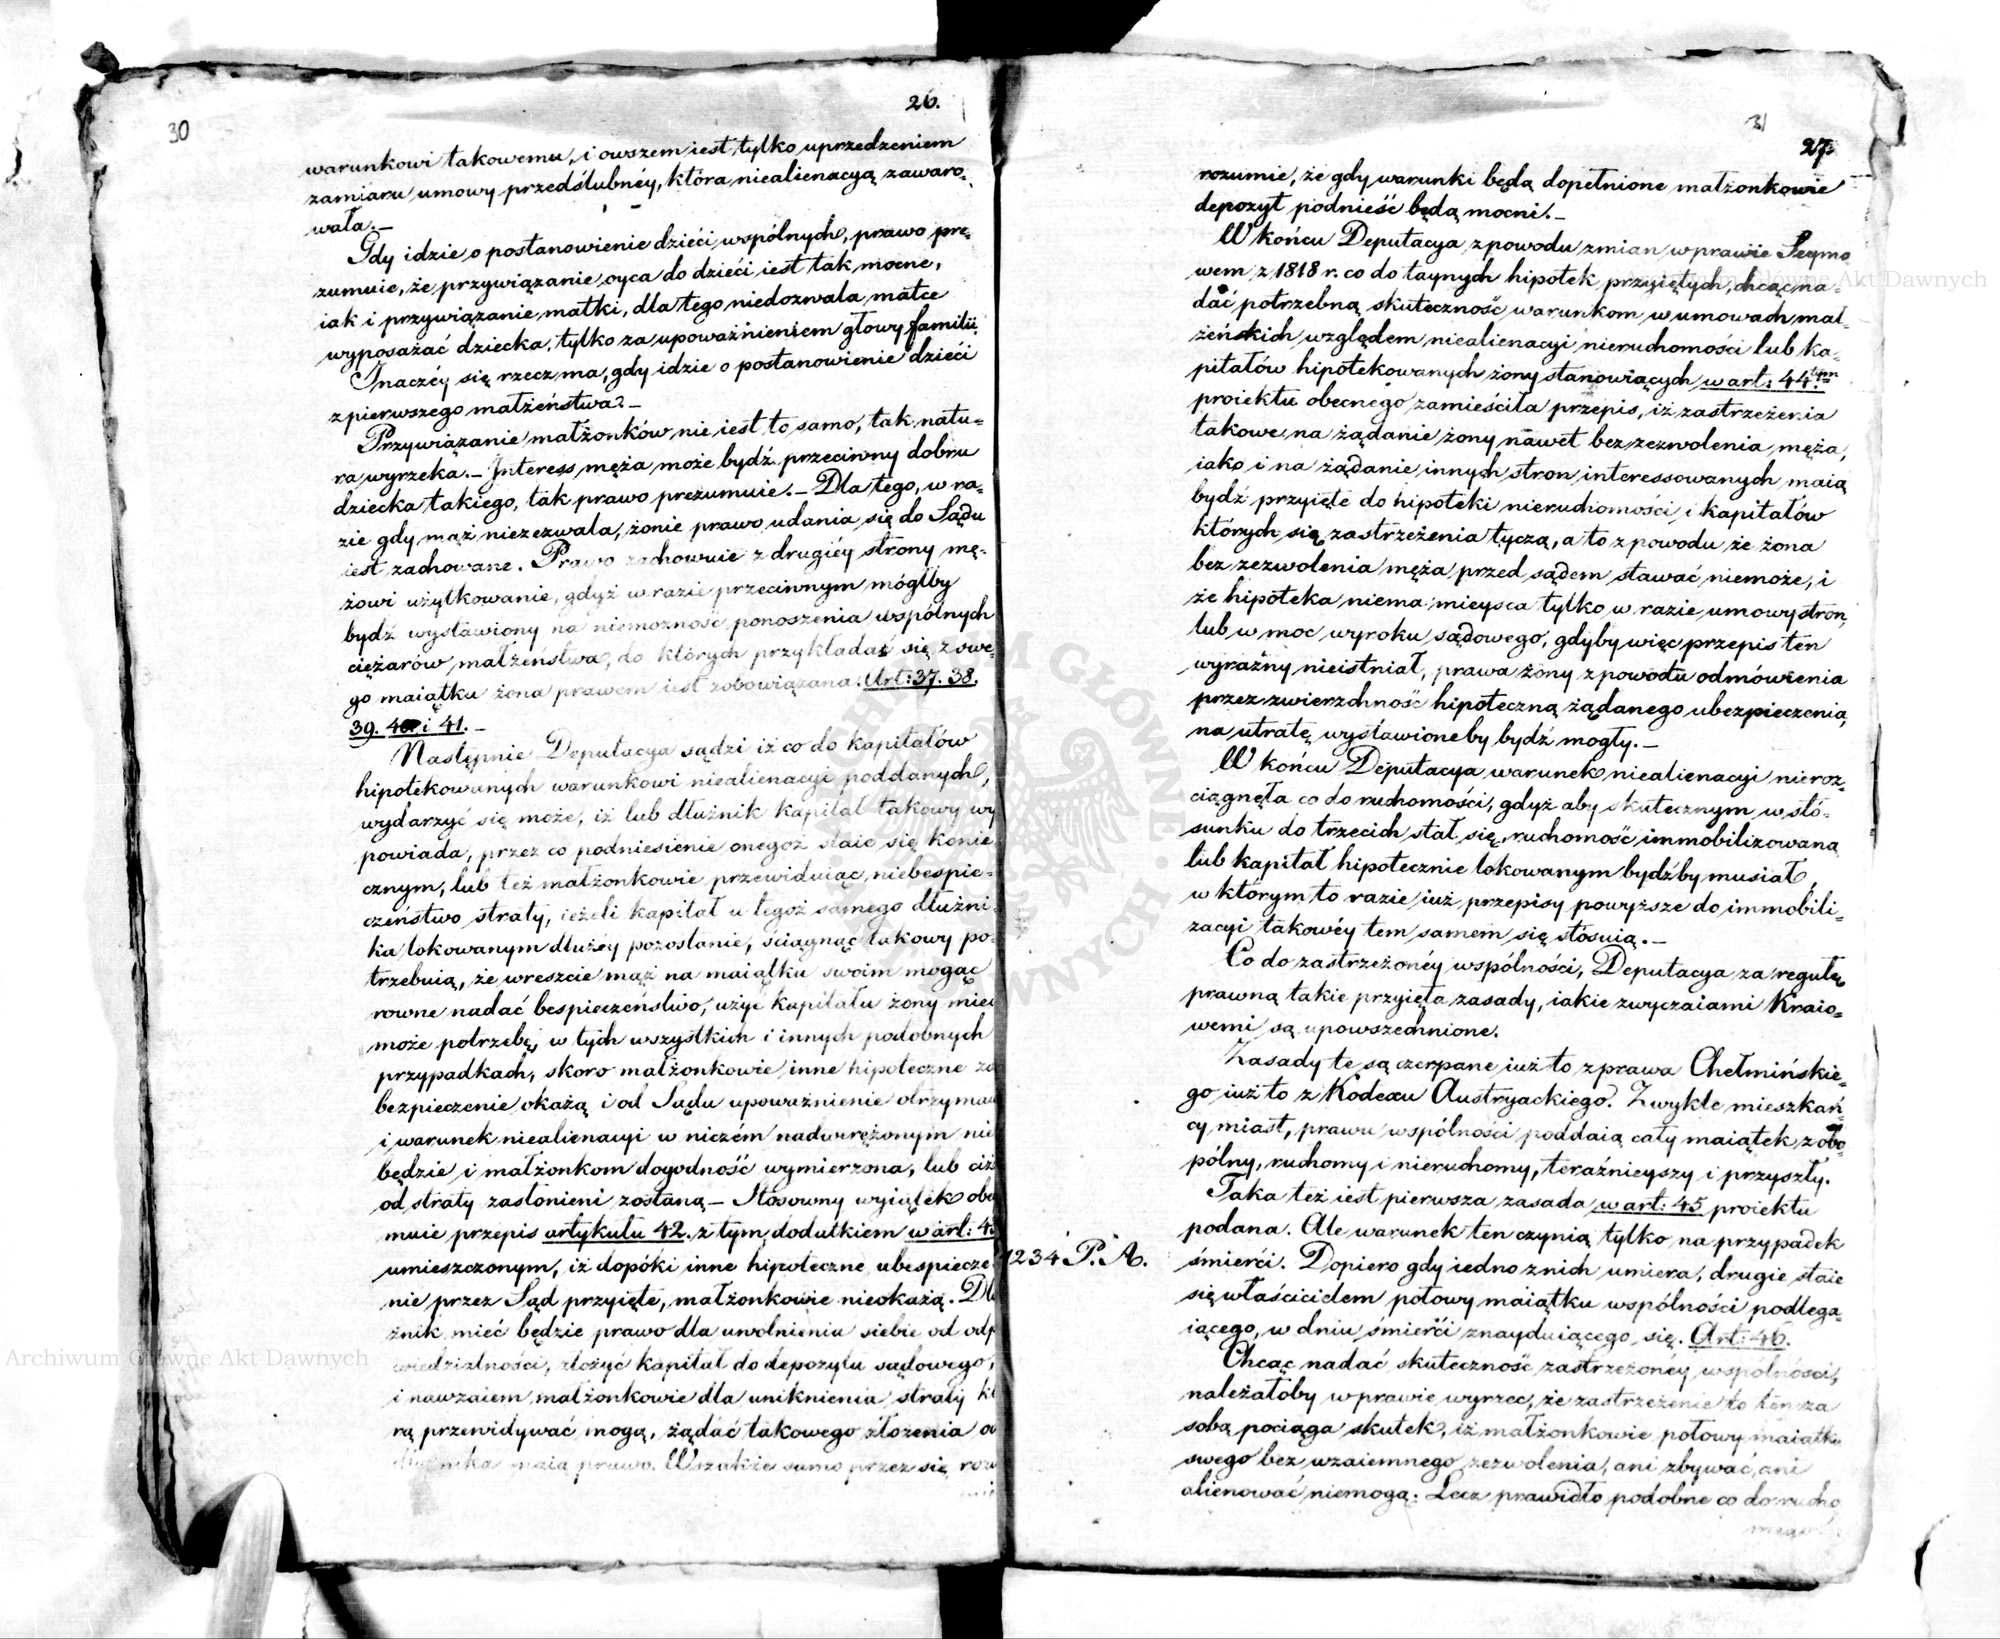 30
26.
warunkowi takowemu, i owszem iest tylko uprzedzeniem
zamiaru umowy przedślubnéy, która niealienacyą zawaro-
wała.—
Gdy idzie o postanowienie dzieći wspólnych, prawo pre-
zumuie, że przywiązanie oyca do dzieći iest tak mocne,
iak i przywiązanie matki, dla tego niedozwala matce
wyposażać dziecka, tylko za upoważnieniem głowy familii.
Inaczéy się rzecz ma, gdy idzie o postanowienie dzieći
z pierwszego małżeństwa?—
Przywiązanie małżonków nie iest to samo, tak natu-
ra wyrzeka.— Interess męża może bydź przeciwny dobru
dziecka takiego, tak prawo prezumuie.— Dla tego, w ra-
zie gdy mąż niezezwala, żonie prawo udania się do Sądu
iest zachowane. Prawo zachowuie z drugiéy strony mę-
żowi użytkowanie, gdyż w razie przeciwnym mógłby
bydź wystawiony na niemożność ponoszenia wspólnych
ciężarów małżeństwa, do których przykładać się z swe-
go maiątku żona prawem iest zobowiązana. Art: 37. 38.
39. 40 i 41.—
Następnie Deputacya sądzi iż co do kapitałów
hipotekowanych warunkowi niealienacyi poddanych,
wydarzyć się może, iż lub dłużnik kapitał takowy wy
powiada, przez co podniesienie onegoż staie się konie
cznym, lub też małżonkowie przewiduiąc niebespie-
czeństwo straty, ieżeli kapitał u tegoż samego dłużni-
ka lokowanym dłużéy pozostanie, ściągnąć takowy po-
trzebuią, że wreszcie mąż na maiątku swoim mogąc
rowne nadać bespieczeństwo, użyć kapitału żony mieć
może potrzebę, w tych wszystkich i innych podobnych
przypadkach, skoro małżonkowie inne hipoteczne za
bezpieczenie okażą i od Sądu upoważnienie otrzymaią
i warunek niealienacyi w niczém nadwerężonym nie
będzie i małżonkom dogodność wymierzona, lub ciż
od straty zasłonieni zostaną— Stosowny wyiątek obe
muie przepis artykułu 42. z tym dodatkiem w art: 43
umieszczonym, iż dopóki inne hipoteczne ubespiecze-
nie przez Sąd przyięte, małżonkowie nieokażą. Dłu
żnik mieć będzie prawo dla uwolnienia siebie od odp
wiedzialności, złożyć kapitał do depozytu sądowego,
i nawzaiem małżonkowie dla uniknienia straty kt
rą przewidywać mogą, żądać takowego złożenia od
dłużnika maią prawo. Wszakże samo przez się roz
31
27.
rozumie, że gdy warunki będą dopełnione małżonkowie
depozyt podnieść będą mocni.—
W końcu Deputacya z powodu zmian w prawie Seymo
wem z 1818 r. co do taynych hipotek przyiętych, chcąc na-
dać potrzebną skuteczność warunkom w umowach mał-
żeńskich względem niealienacyi nieruchomości lub ka-
pitałów hipotekowanych żony stanowiących w art: 44tym
proiektu obecnego zamieściła przepis, iż zastrzeżenia
takowe na żądanie żony nawet bez zezwolenia męża,
iako i na żądanie innych stron interessowanych maią
bydź przyięte do hipoteki nieruchomości i kapitałów
których się zastrzeżenia tyczą, a to z powodu że żona
bez zezwolenia męża przed sądem stawać niemoże, i
że hipoteka niema mieysca tylko w razie umowy stron,
lub w moc wyroku sądowego, gdyby więc przepis ten
wyraźny nieistniał, prawa żony z powodu odmówienia
przez zwierzchność hipoteczną żądanego ubezpieczenia,
na utratę wystawione by bydź mogły.—
W końcu Deputacya warunek niealienacyi nieroz-
ciągnęła co do ruchomości, gdyż aby skutecznym w stó-
sunku do trzecich stał się, ruchomość immobilizowaną
lub kapitał hipotecznie lokowanym bydź by musiał,
w którym to razie iuż przepisy powyższe do immobili-
zacyi takowéy tem samem się stósuią.—
Co do zastrzeżonéy wspólności, Deputacya za regułę
prawną takie przyięła zasady, iakie zwyczaiami Kraio-
wemi są upowszechnione.
Zasady te są czerpane iuż to z prawa Chełmińskie-
go iuż to z Kodexu Austryackiego. Zwykle mieszkań-
cy miast, prawu wspólności poddaią cały maiątek z obo-
pólny, ruchomy i nieruchomy, teraźnieyszy i przyszły.
Taka też iest pierwsza zasada w art: 45 proiektu
podana. Ale warunek ten czynią tylko na przypadek
1234 P. A.
śmierći. Dopiero gdy iedno z nich umiera, drugie staie
się właścicielem połowy maiątku wspólności podlega-
iącego, w dniu śmierći znayduiącego się. Art: 46.
Chcąc nadać skuteczność zastrzeżonéy wspólności,
należałoby w prawie wyrzec, że zastrzeżenie to ten za
sobą pociąga skutek, iż małżonkowie połowy maiątku
swego bez wzaiemnego zezwolenia, ani zbywać, ani
alienować niemogą. Lecz prawidło podobne co do rucho
mego
Archiwum Główne Akt Dawnych
Archiwum Główne Akt Dawnych
ARCHIWUM GŁÓWNE AKT DAWNYCH